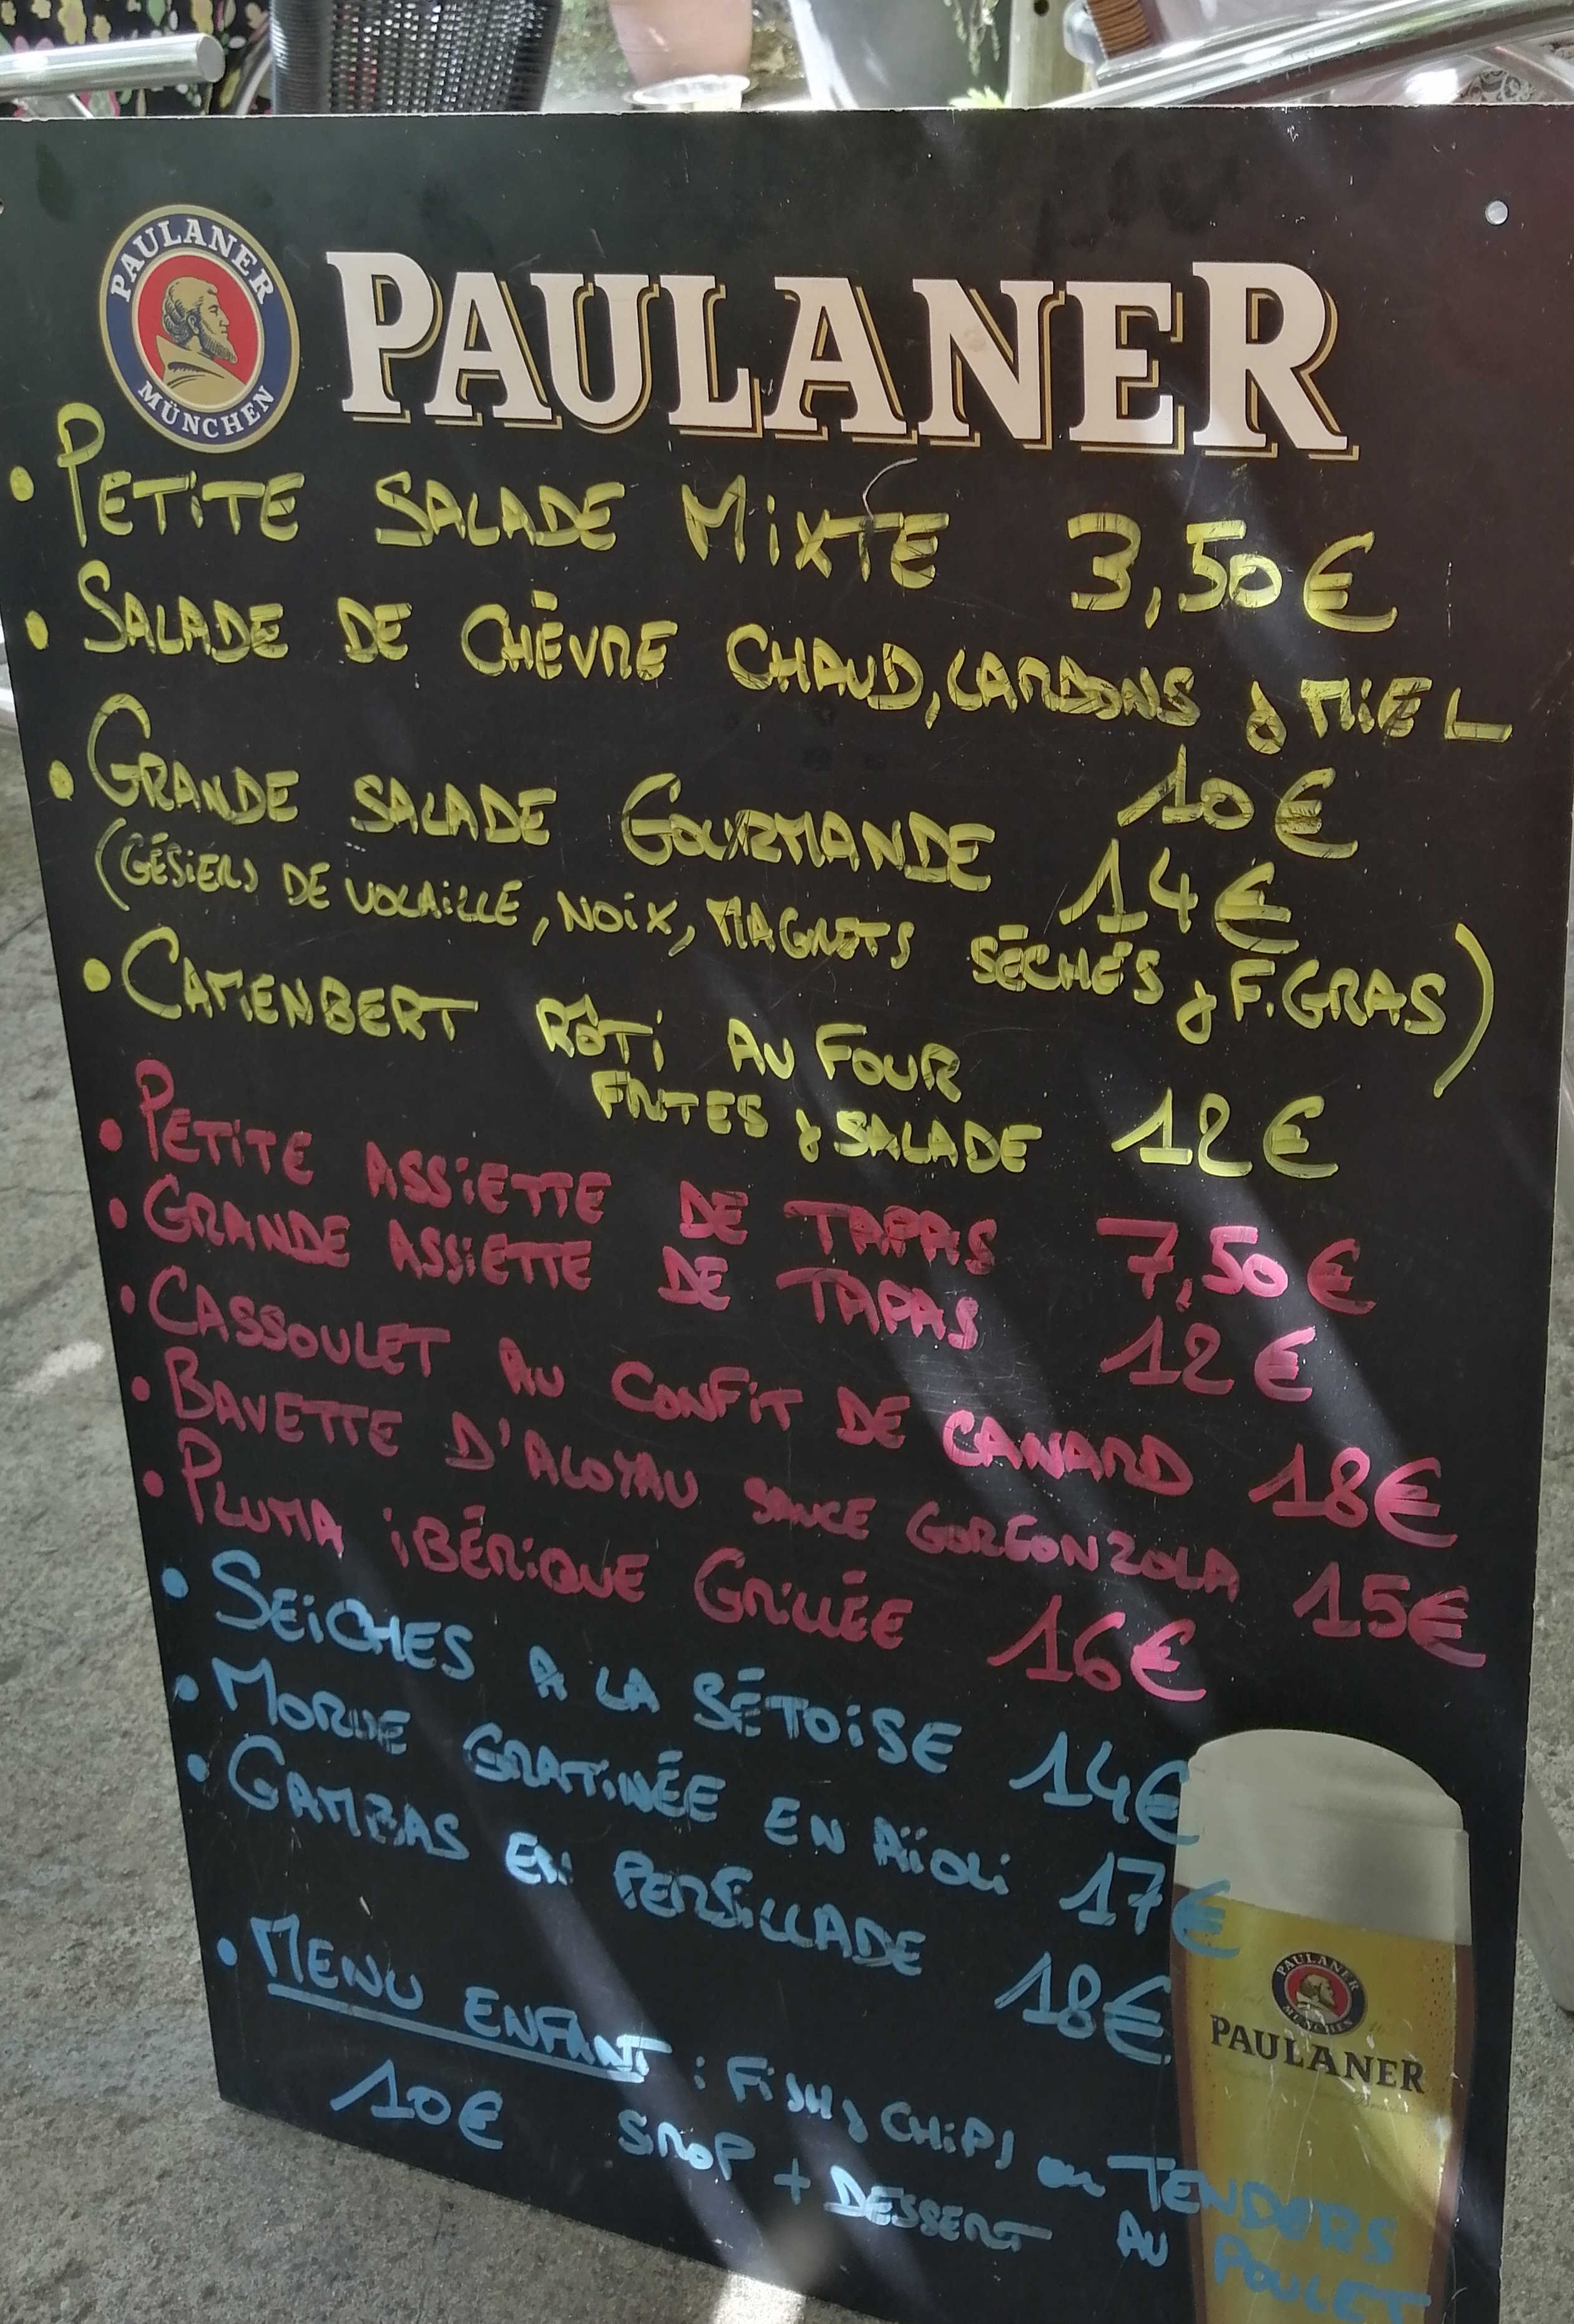 PAULANER MÜNCHEN
PAULANER
• PETITE SALADE MIXTE 3,50€
• SALADE DE CHÈVRE CHAUD, LARDONS & MIEL
10€
• GRANDE SALADE GOURMANDE 14€
(GÉSIERS DE VOLAILLE, NOIX, MAGRETS SÉCHÉS & F.GRAS)
• CAMEMBERT RÔTI AU FOUR
FRITES & SALADE 12€
• PETITE ASSIETTE DE TAPAS 7,50€
• GRANDE ASSIETTE DE TAPAS 12€
• CASSOULET AU CONFIT DE CANARD 18€
• BAVETTE D'ALOYAU SAUCE GORGONZOLA 15€
• PLUMA IBÉRIQUE GRILLÉE 16€
• SEICHES A LA SÉTOISE 14€
• MORUE GRATINÉE EN AÏOLI 17€
• GAMBAS EN PERSILLADE 18€
• MENU ENFANT : FISH & CHIPS ou TENDERS
10€ SIROP + DESSERT AU POULET
PAULANER MÜNCHEN
PAULANER